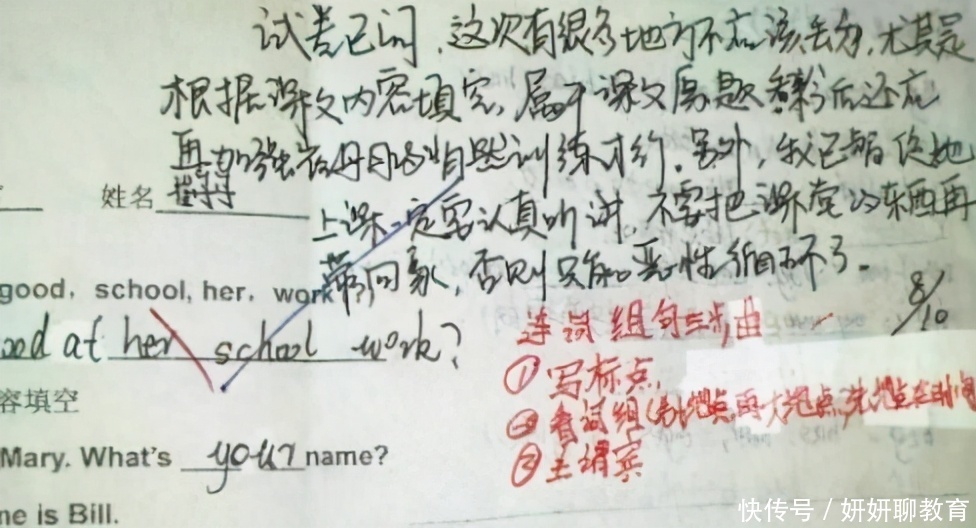 试卷已阅，这次有很多地方不应该丢分，尤其是
根据课文内容填空，属于课文原题 后还应
再加强 训练才行。另外，我已告诉她
姓名
上课一定要认真听讲，不要把课堂的东西再
带回家，否则只能恶性循环了。
8/10
good, school, her, work
od at her school work?
连词组句三步曲
①写标点，
②看词组(先小地点再大地点,先地点在时间
③主谓宾
容填空
Mary. What's your name?
ne is Bill.
快传号 / 妍妍聊教育